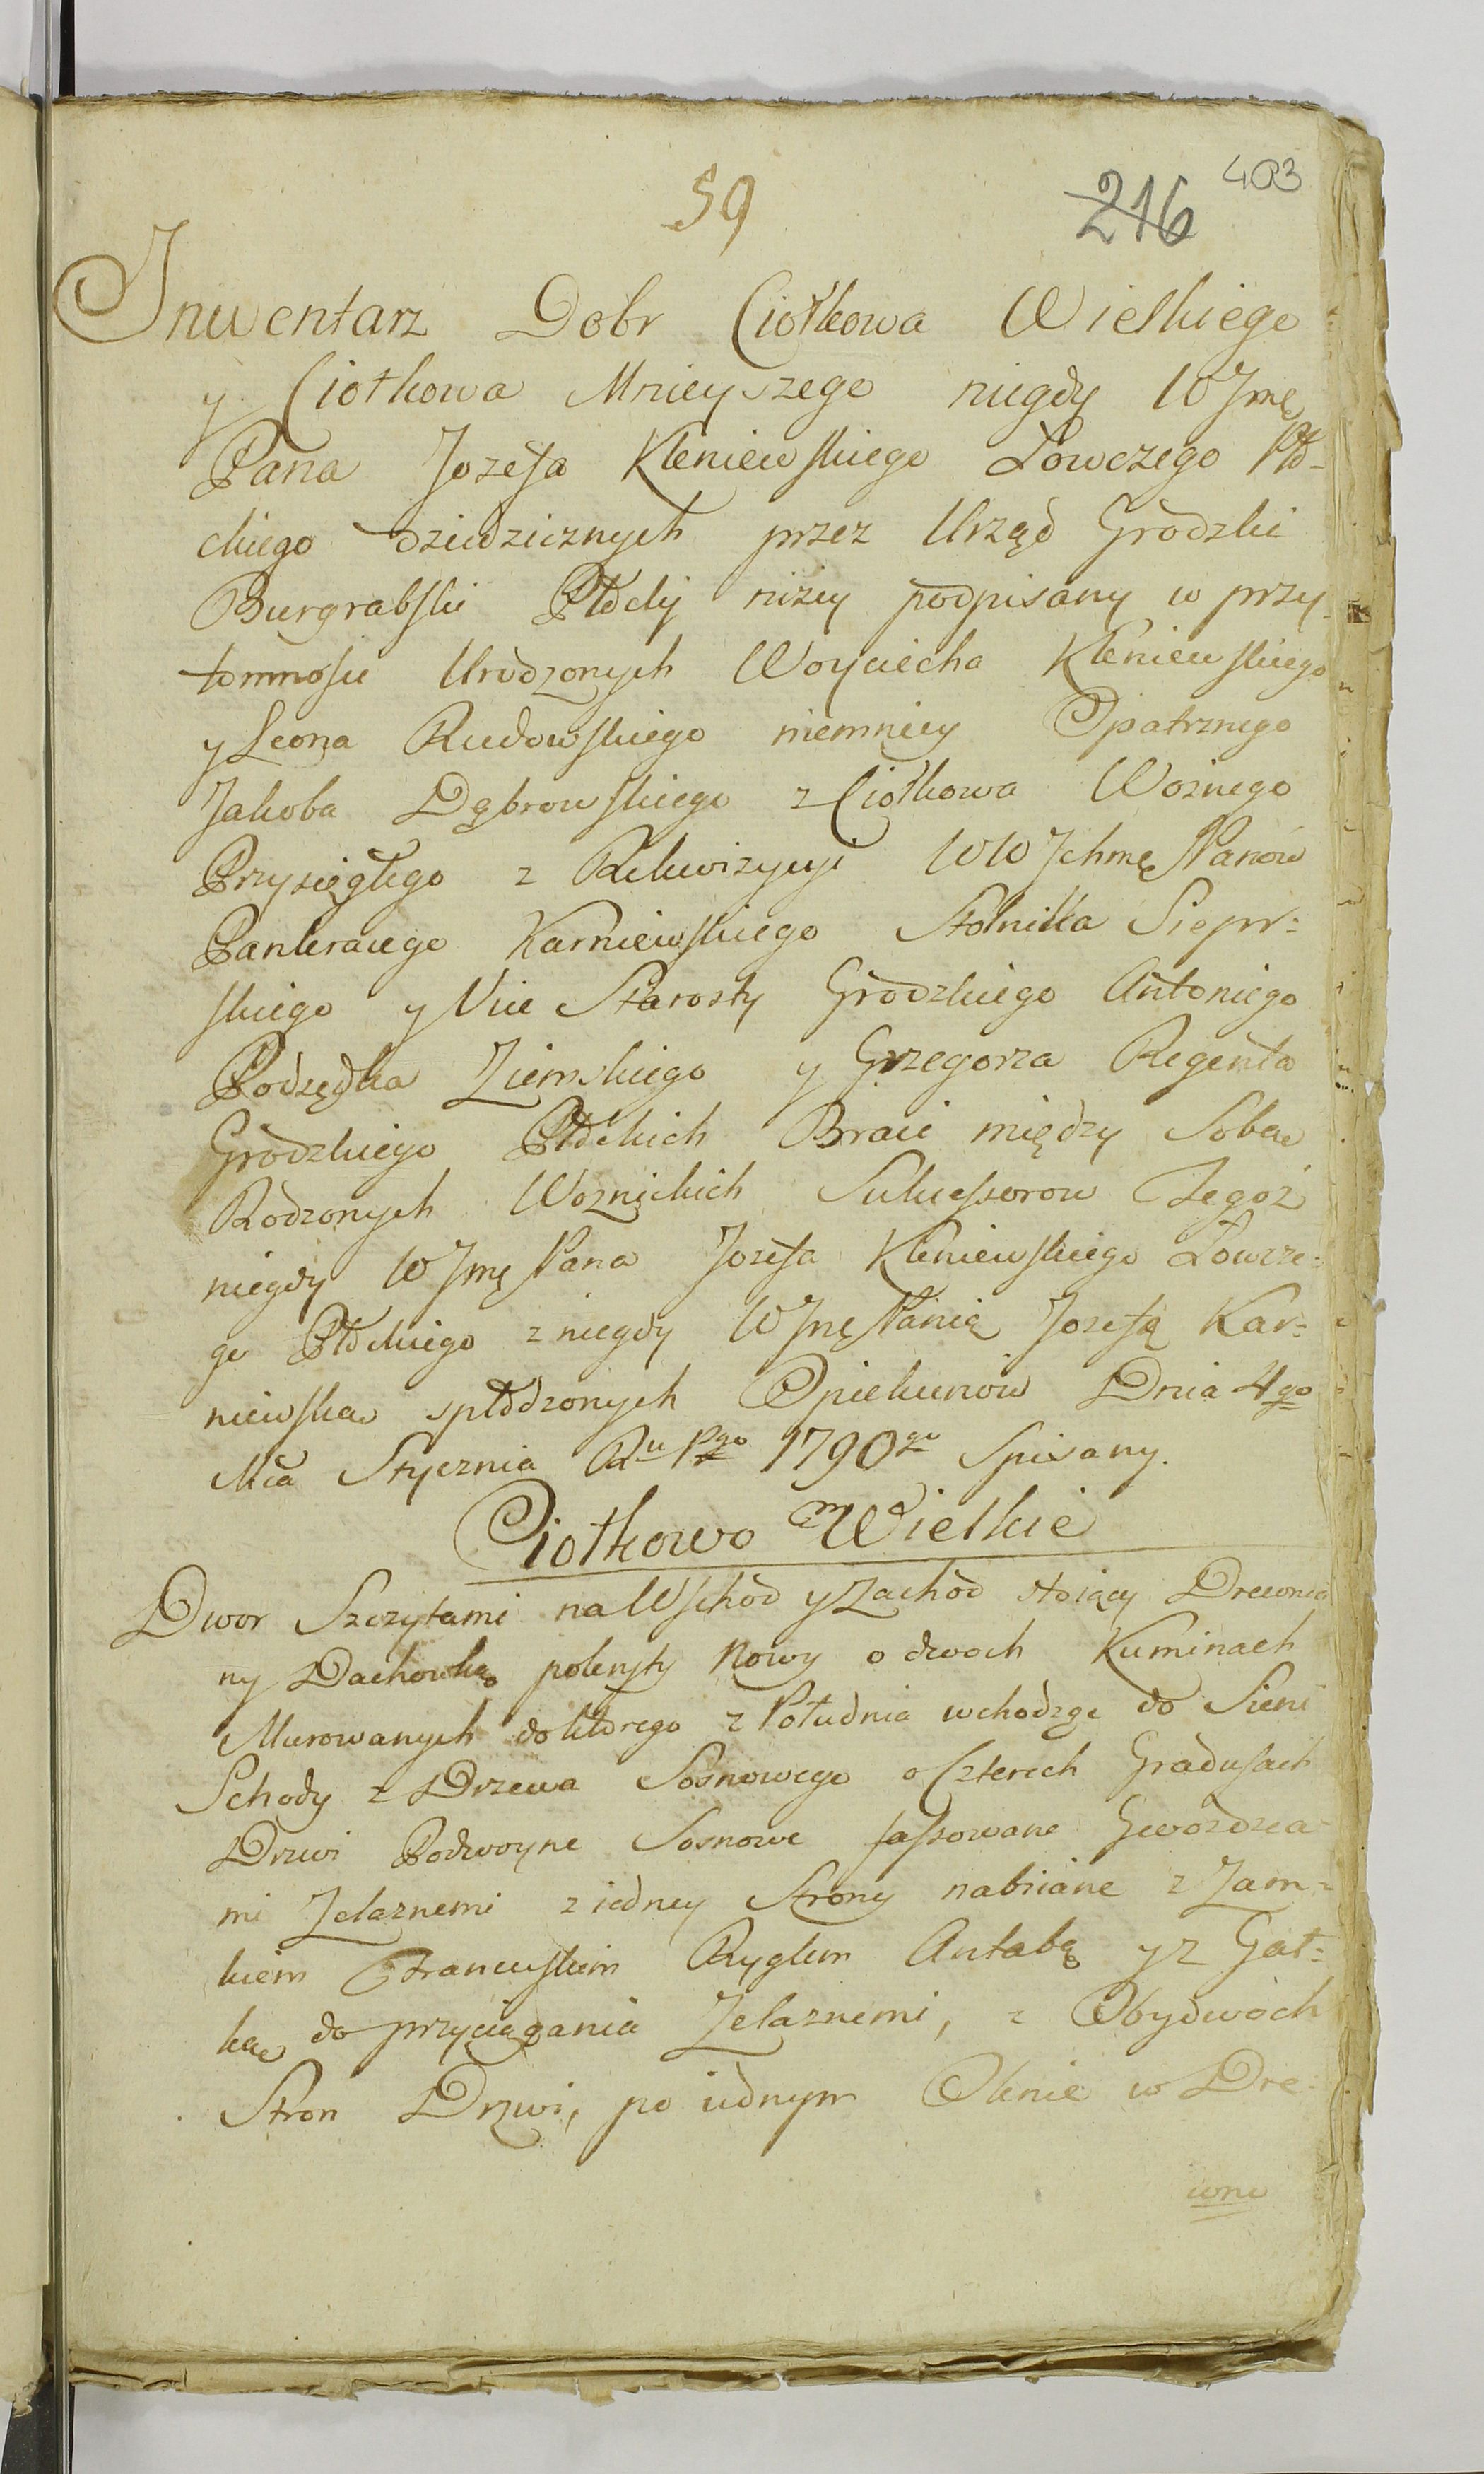 59
216
403
Inwentarz Dobr Ciołkowa Wielkiego
y Ciołkowa Mnieyszego niegdy WJmę
Pana Jozefa Kleniewskiego Łowczego Pło-
ckiego dziedzicznych przez Urząd Grodzki
Burgrabski Płocky niżey podpisany w przy-
tomnosci Urodzonych Woyciecha Kleniewskiego
y Leona Rudowskiego niemniey Opatrznego
Jakoba Dąbrowskiego z Ciołkowa Woznego
Przysięgłego z Rekwizycyi WW Jchmę Panow
Pankracego Karniewskiego Stolnika Sierp-
skiego y Vice Starosty Grodzkiego Antoniego
Podsędka Ziemskiego y Grzegorza Regenta
Grodzkiego Płockich Braci między Sobą
Rodzonych Woznickich Sukcessorow Tegoż
niegdy WJmę Pana Jozefa Kleniewskiego Łowcze-
go Płockiego z niegdy WJmę Panią Jozefą Kar-
niewską spłodzonych Opiekunow Dnia 4go
Mca Stycznia Ru Pgo 1790go Spisany.
Ciołkowo Wielkie
Dwor Szczytami na Wschod y Zachod stoiący Drewnia
ny Dachowką pokryty Nowy o dwoch Kuminach
Murowanych do ktorego z Południa wchodząc do Sieni
Schody z Drzewa Sosnowego o Czterech Gradusach
Drzwi Podwoyne Sosnowe fassowane Gwozdzia-
mi Zelaznemi z iedney Strony nabiiane z Zam-
kiem Francuskim Ryglem Antabą y z Gał-
ką do przyciągania Zelaznemi, z Obydwoch
Stron Drzwi, po iednym Oknie w Dre-
wne